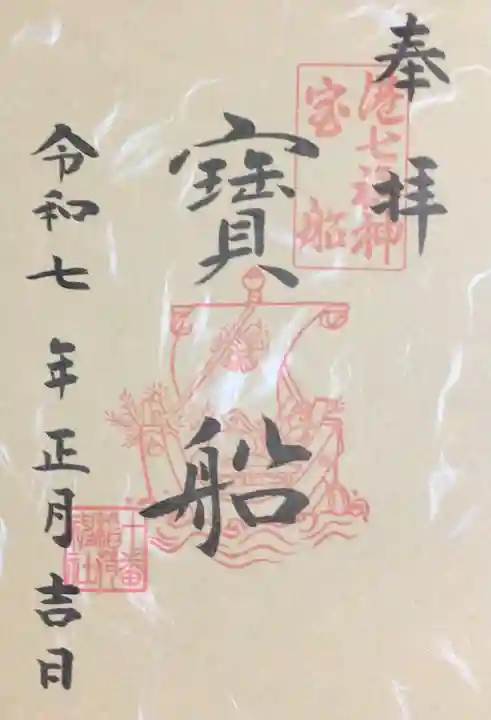 奉拝
港七福神
宝船
寶船
令和七年正月吉日
十番
稲荷
神社